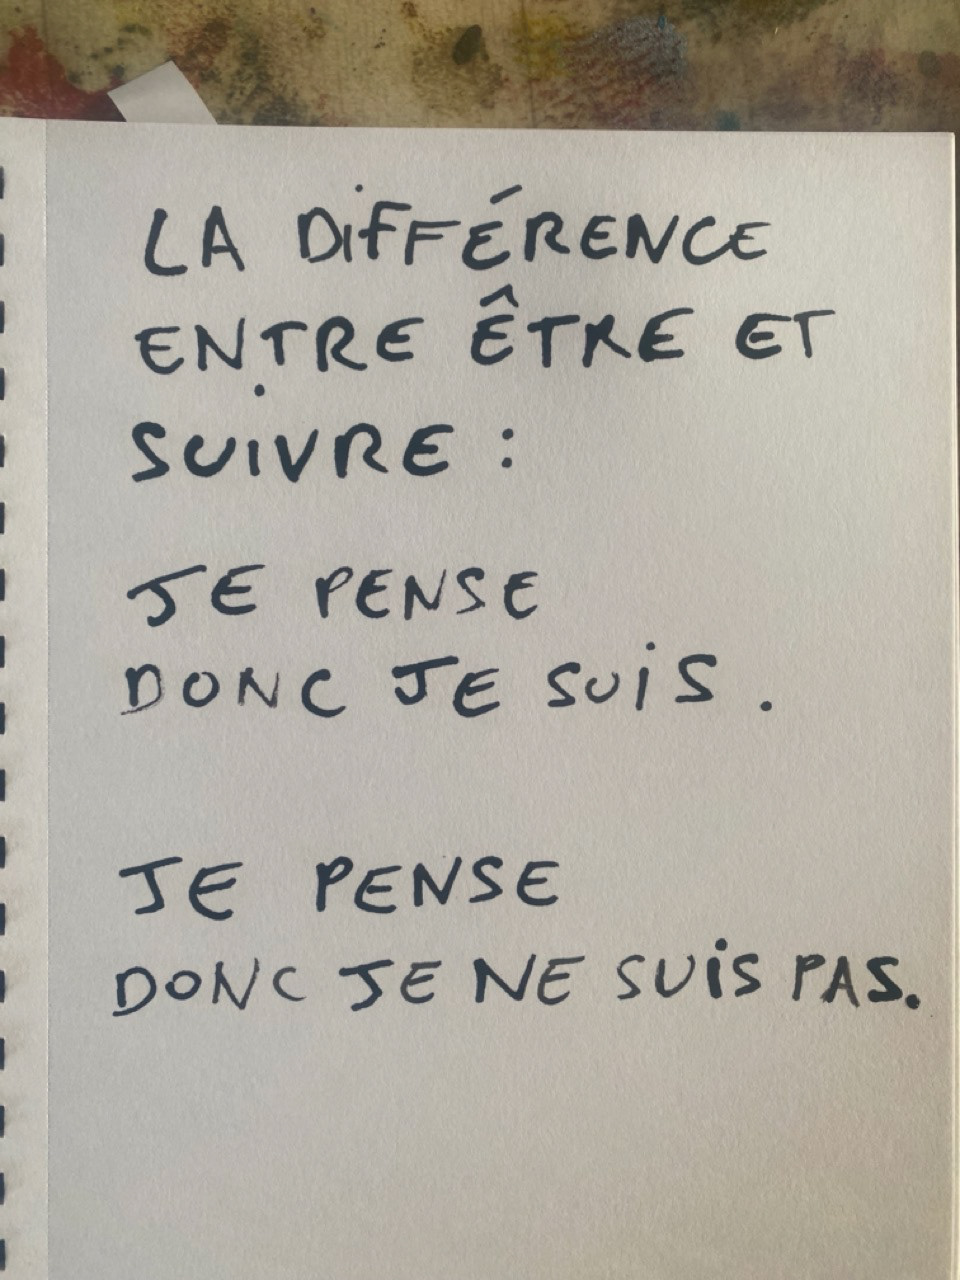 LA DIFFÉRENCE
ENTRE ÊTRE ET
SUIVRE :
JE PENSE
DONC JE SUIS.
JE PENSE
DONC JE NE SUIS PAS.